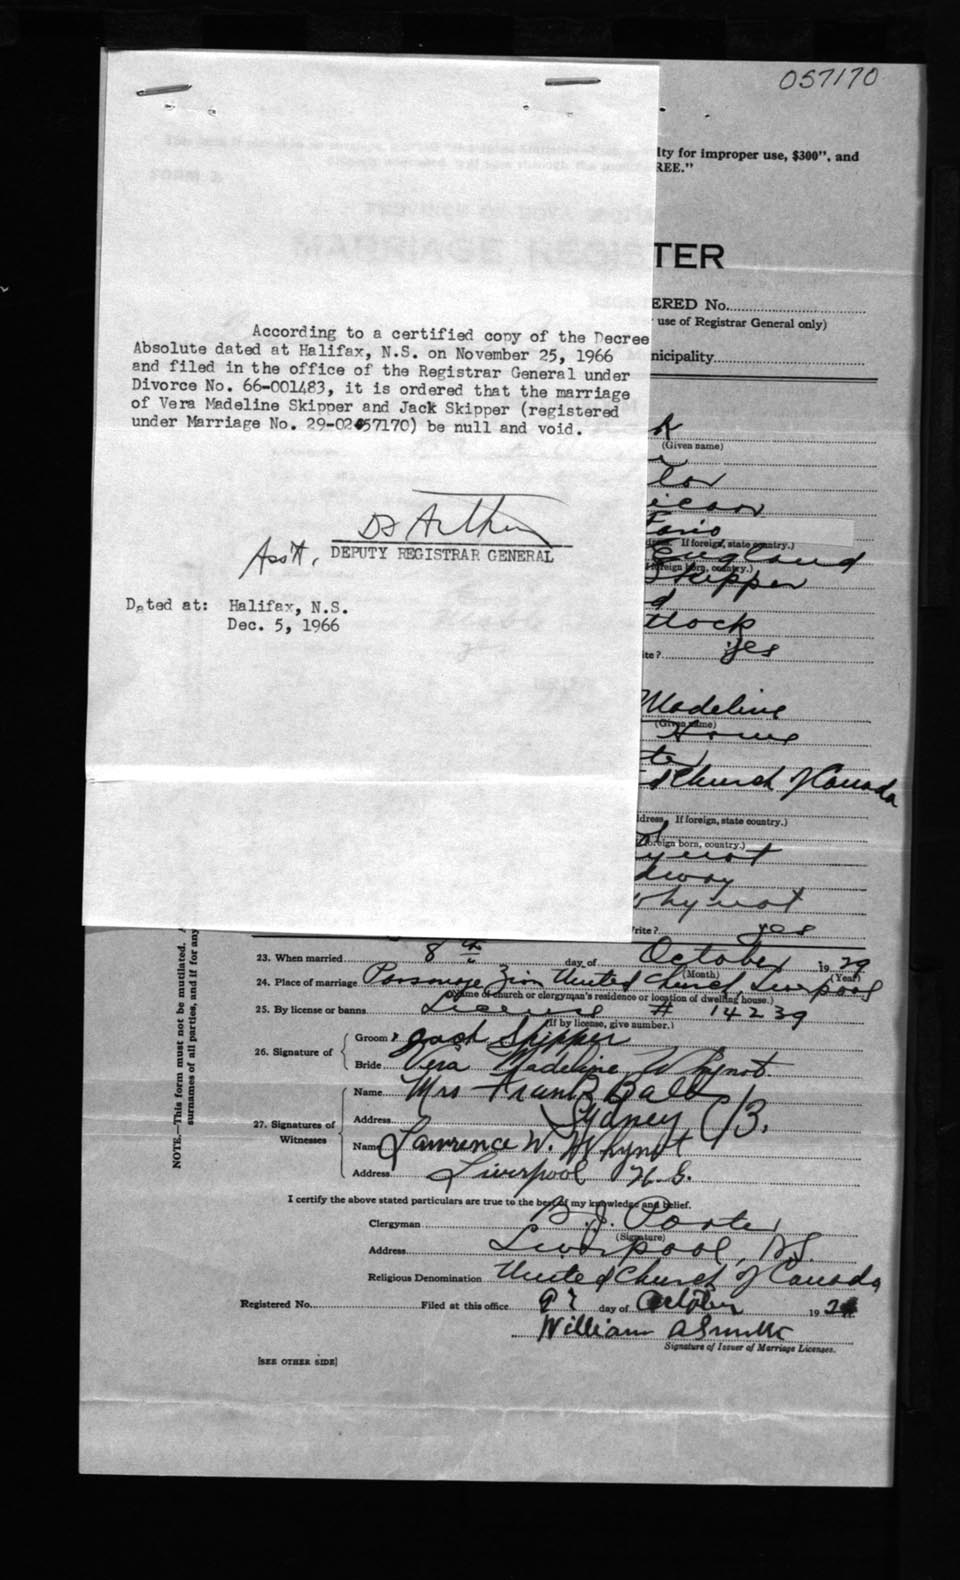 057170
lty for improper use, $300", and
REE."
TER
ERED No.
use of Registrar General only)
nicipality
According to a certified copy of the Decree
Absolute dated at Halifax, N.S. on November 25, 1966
and filed in the office of the Registrar General under
Divorce No. 66-001483, it is ordered that the marriage
of Vera Madeline Skipper and Jack Skipper (registered
under Marriage No. 29-02457170) be null and void.
Ass't. DEPUTY REGISTRAR GENERAL
Dated at: Halifax, N.S.
Dec. 5, 1966
k
(Given name)
lor
If foreign, state country.)
England
foreign born, country.)
Skipper
d
tlock
ite? yes
Madeline
(Given name)
Home
d Church of Canada
dress. If foreign, state country.)
foreign born, country.)
ynot
dway
Whynot
rite? yes
NOTE.—This form must not be mutilated.
surnames of all parties, and if for any
23. When married 8th day of October 1929
(Month) (Year)
24. Place of marriage Parsonage Zion United Church, Liverpool
(Name of church or clergyman's residence or location of dwelling house.)
25. By license or banns License # 14239
(If by license, give number.)
26. Signature of
Groom Jack Skipper
Bride Vera Madeline Whynot
27. Signatures of Witnesses
Name Mrs Frank Ball
Address Sydney C/B.
Name Lawrence W. Whynot
Address Liverpool N.S.
I certify the above stated particulars are true to the best of my knowledge and belief.
Clergyman B.J. Porter
(Signature)
Address Liverpool, N.S.
Religious Denomination United Church of Canada
Registered No. Filed at this office day of October 19
William A Smith
Signature of Issuer of Marriage Licenses.
[SEE OTHER SIDE]